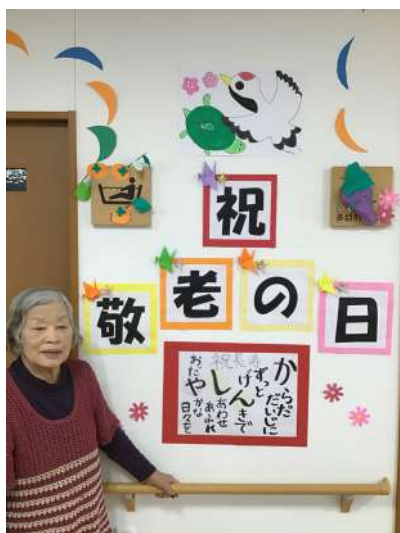 祝
敬老の日
祝長寿
からだ
だいじに
ずっと
げんきで
しあわせ
あふれ
おだやかな
日々を